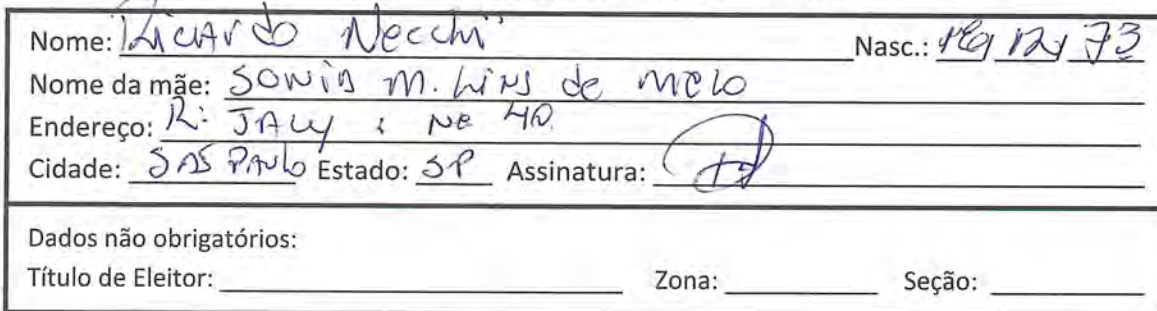 Nome: Ricardo Necchi Nasc.: 19/12/73
Nome da mãe: Sonia M. Lins de Melo
Endereço: R: JACY, Nº 40
Cidade: SAO PAULO Estado: SP Assinatura:
Dados não obrigatórios:
Título de Eleitor: Zona: Seção: